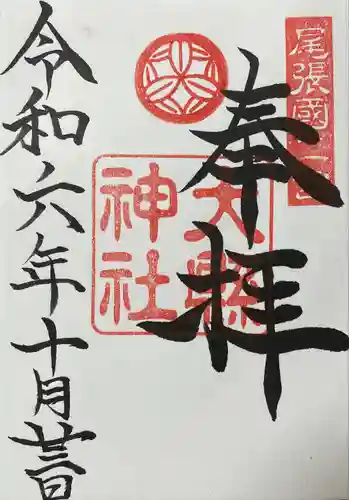 尾張國二宮
奉拝
大縣神社
令和六年十月廿三日